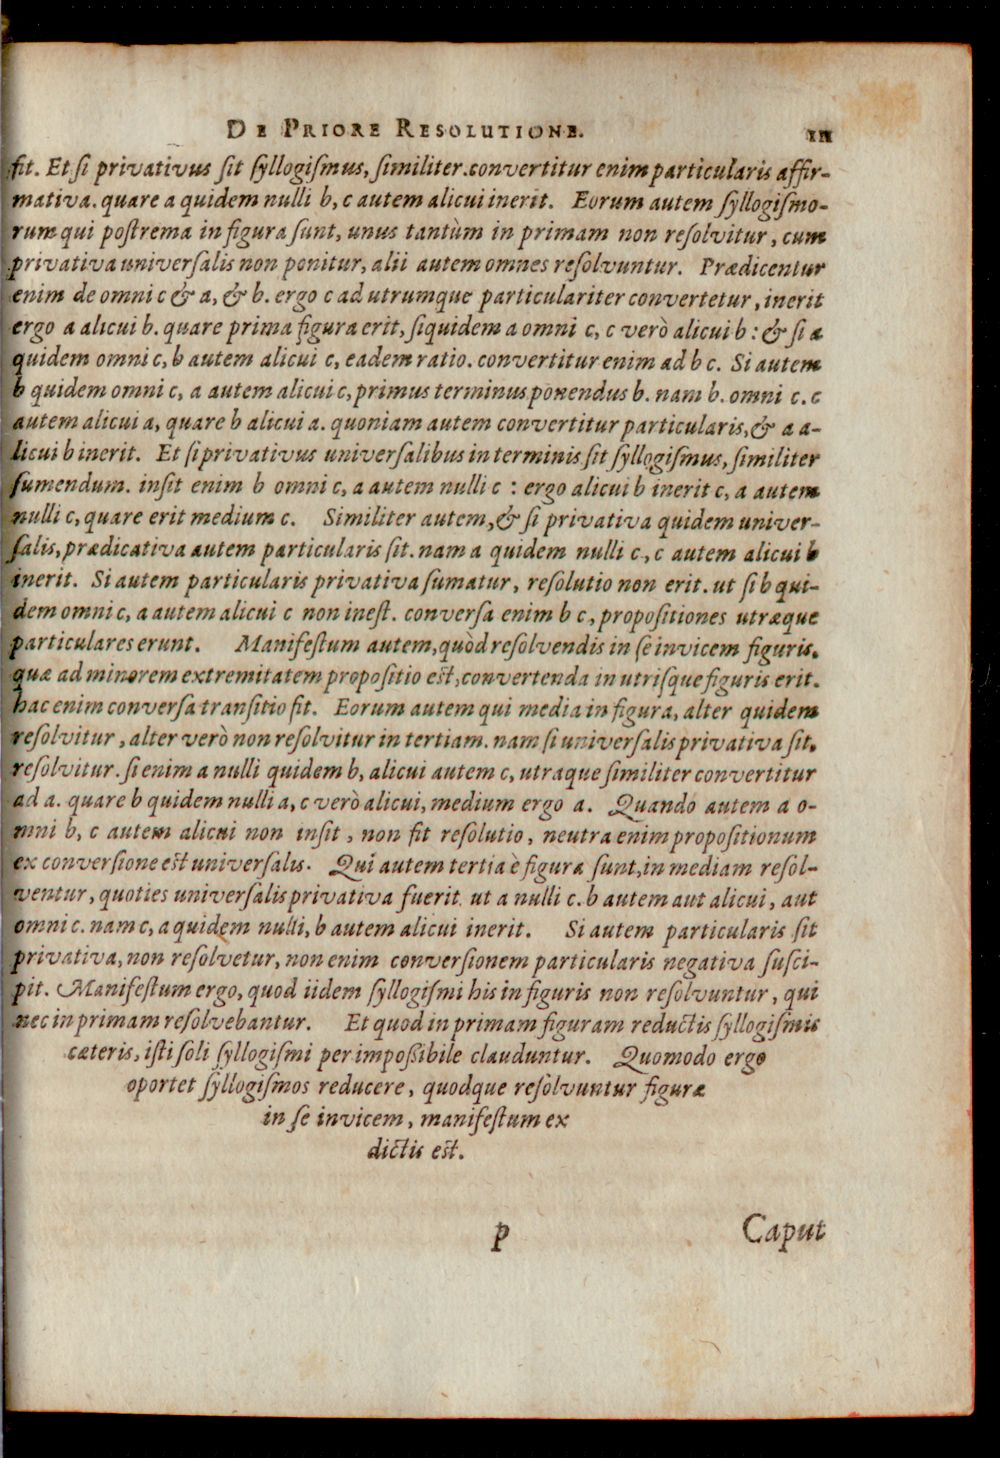 De Priore Resolutione. 111
fit. Et si privativus sit syllogismus, similiter. convertitur enim particularis affir-
mativa. quare a quidem nulli b, c autem alicui inerit. Eorum autem syllogismo-
rum qui postrema in figura sunt, unus tantùm in primam non resolvitur, cum
privativa universalis non ponitur, alii autem omnes resolvuntur. Prædicentur
enim de omni c & a, & b. ergo c ad utrumque particulariter convertetur, inerit
ergo a alicui b. quare prima figura erit, siquidem a omni c, c verò alicui b : & si a
quidem omni c, b autem alicui c, eadem ratio. convertitur enim ad b c. Si autem
b quidem omni c, a autem alicui c, primus terminus ponendus b. nam b. omni c. c
autem alicui a, quare b alicui a. quoniam autem convertitur particularis, & a a-
licui b inerit. Et si privativus universalibus in terminis sit syllogismus, similiter
sumendum. insit enim b omni c, a autem nulli c : ergo alicui b inerit c, a autem
nulli c, quare erit medium c. Similiter autem, & si privativa quidem univer-
salis, prædicativa autem particularis sit. nam a quidem nulli c, c autem alicui b
inerit. Si autem particularis privativa sumatur, resolutio non erit. ut si b qui-
dem omni c, a autem alicui c non inest. conversa enim b c, propositiones utræque
particulares erunt. Manifestum autem, quòd resolvendis in se invicem figuris.
quæ ad minorem extremitatem propositio est, convertenda in utrisque figuris erit.
hac enim conversa transitio fit. Eorum autem qui media in figura, alter quidem
resolvitur, alter verò non resolvitur in tertiam. nam si universalis privativa sit,
resolvitur. si enim a nulli quidem b, alicui autem c, utraque similiter convertitur
ad a. quare b quidem nulli a, c verò alicui, medium ergo a. Quando autem a o-
mni b, c autem alicui non insit, non fit resolutio, neutra enim propositionum
ex conversione est universalis. Qui autem tertia è figura sunt, in mediam resol-
ventur, quoties universalis privativa fuerit. ut a nulli c. b autem aut alicui, aut
omni c. nam c, a quidem nulli, b autem alicui inerit. Si autem particularis sit
privativa, non resolvetur, non enim conversionem particularis negativa susci-
pit. Manifestum ergo, quod iidem syllogismi his in figuris non resolvuntur, qui
nec in primam resolvebantur. Et quod in primam figuram reductis syllogismis
cæteris, isti soli syllogismi per impossibile clauduntur. Quomodo ergo
oportet syllogismos reducere, quodque resolvuntur figuræ
in se invicem, manifestum ex
dictis est.
p Caput